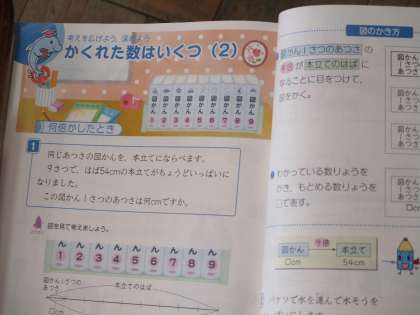 考えを広げよう、深めよう
かくれた数はいくつ（2）
何倍かしたとき
1
同じあつさの図かんを、本立てにならべます。
9さつで、はば54cmの本立てがちょうどいっぱいに
なりました。
この図かん1さつのあつさは何cmですか。
図を見て考えましょう。
ん ん ん ん ん ん ん ん ん
1 2 3 4 5 6 7 8 9
図かん1さつの
あつさ
本立てのはば
図のかき方
図かん1さつのあつさの
が本立てのはばに
なることに目をつけて、
図をかく。
わかっている数りょうを
かき、もとめる数りょうを
□で表す。
図かん
本立て
□cm
54cm
バケツで水を運んで水そうを